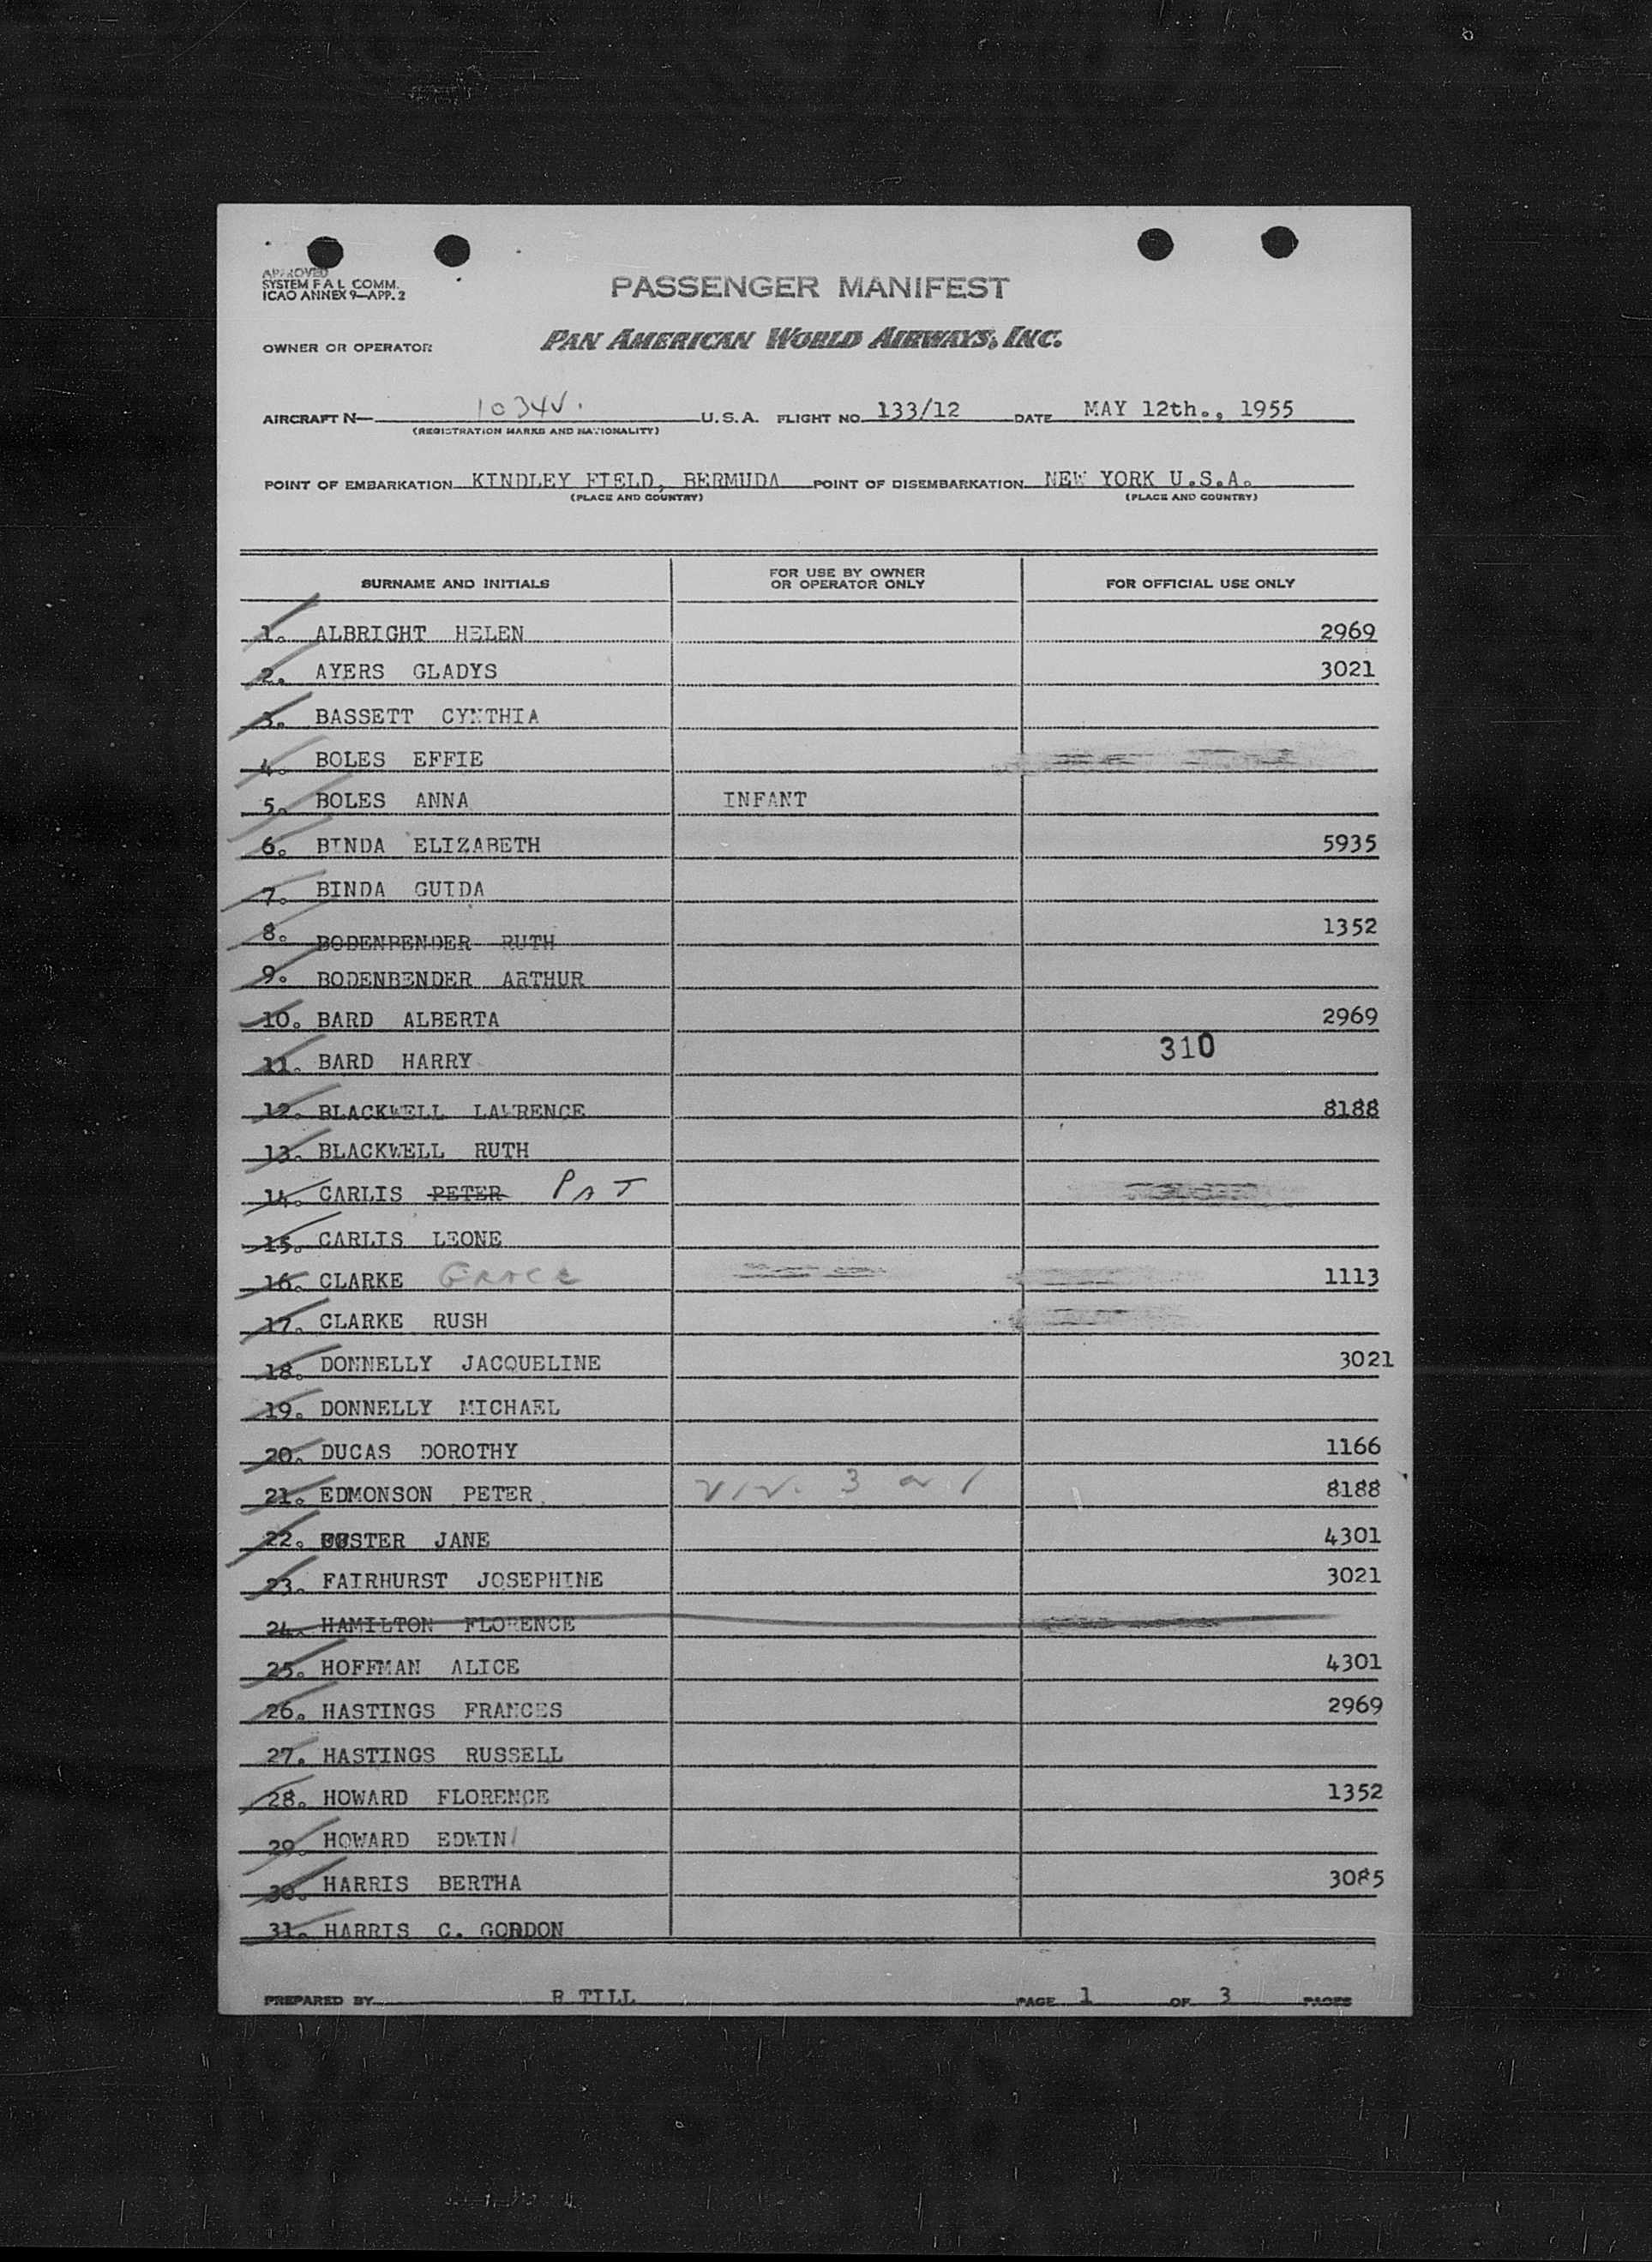 APPROVED
SYSTEM F A L COMM.
ICAO ANNEX 9—APP. 2
PASSENGER MANIFEST
OWNER OR OPERATOR PAN AMERICAN WORLD AIRWAYS, INC.
AIRCRAFT N— 1034V. U.S.A. FLIGHT NO. 133/12 DATE MAY 12th., 1955
(REGISTRATION MARKS AND NATIONALITY)
POINT OF EMBARKATION KINDLEY FIELD, BERMUDA POINT OF DISEMBARKATION NEW YORK U.S.A.
(PLACE AND COUNTRY) (PLACE AND COUNTRY)
SURNAME AND INITIALS FOR USE BY OWNER OR OPERATOR ONLY FOR OFFICIAL USE ONLY
1. ALBRIGHT HELEN 2969
2. AYERS GLADYS 3021
3. BASSETT CYNTHIA
4. BOLES EFFIE
5. BOLES ANNA INFANT
6. BINDA ELIZABETH 5935
7. BINDA GUIDA
8. BODENBENDER RUTH 1352
9. BODENBENDER ARTHUR
10. BARD ALBERTA 2969
11. BARD HARRY 310
12. BLACKWELL LAWRENCE 8188
13. BLACKWELL RUTH
14. CARLIS PETER PAT
15. CARLIS LEONE
16. CLARKE GRACE 1113
17. CLARKE RUSH
18. DONNELLY JACQUELINE 3021
19. DONNELLY MICHAEL
20. DUCAS DOROTHY 1166
21. EDMONSON PETER 8188
22. FOSTER JANE 4301
23. FAIRHURST JOSEPHINE 3021
24. HAMILTON FLORENCE
25. HOFFMAN ALICE 4301
26. HASTINGS FRANCES 2969
27. HASTINGS RUSSELL
28. HOWARD FLORENCE 1352
29. HOWARD EDWIN
30. HARRIS BERTHA 3085
31. HARRIS C. GORDON
PREPARED BY R TILL PAGE 1 OF 3 PAGES